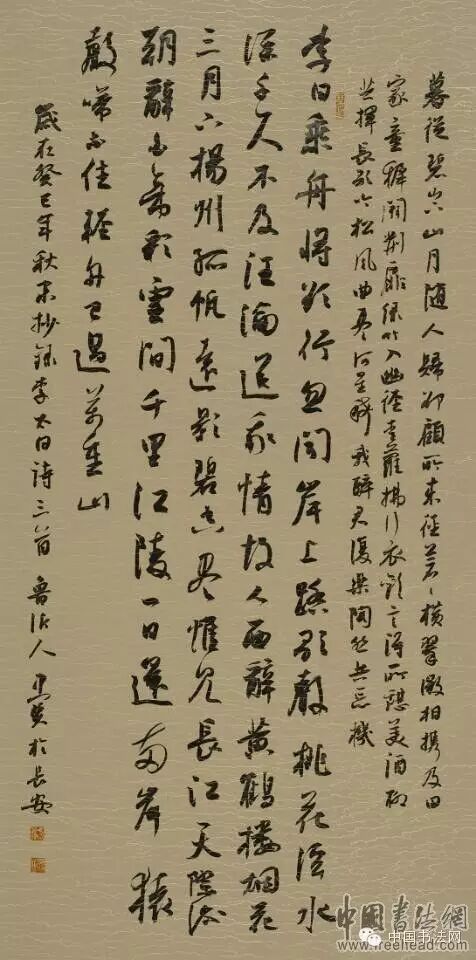 暮從碧山下山月隨人歸卻顧所來徑蒼々橫翠微相攜及田
家童稚開荊扉綠竹入幽徑青蘿拂行衣歡言得所憩美酒聊
共揮長歌吟松風曲盡河星稀我醉君復樂陶然共忘機
李白乘舟將欲行忽聞岸上踏歌聲桃花潭水
深千尺不及汪倫送我情故人西辭黃鶴樓烟花
三月下揚州孤帆遠影碧空盡惟見長江天際流
朝辭白帝彩雲間千里江陵一日還兩岸猿
聲啼不住輕舟已過萬重山
歲在癸巳年秋末抄錄李太白詩三首 魯沂人 於長安
中國書法網
中国书法网
www.freehead.com